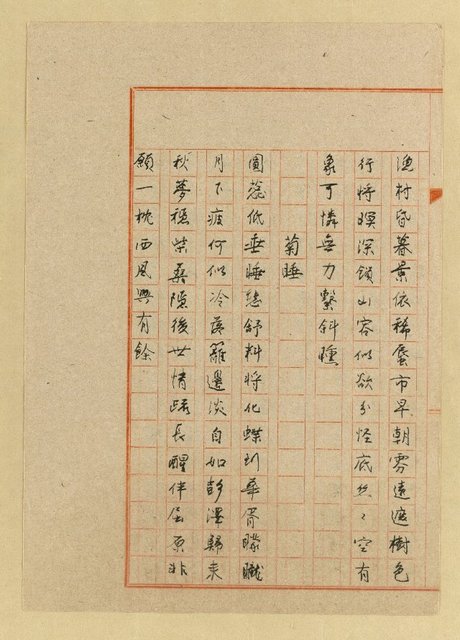 漁村昏暮景依稀蜃市早朝雰遠遮樹色
行將暝深鎖山容似欲分怪底絲々空有
象可憐無力繫斜曛
菊睡
圓蕊低垂睡態舒料將化蝶到華胥矇矓
月下疲何似冷落籬邊淡自如彭澤歸來
秋夢穩柴桑隱後世情疏長醒伴屈原非
願一枕西風興有餘